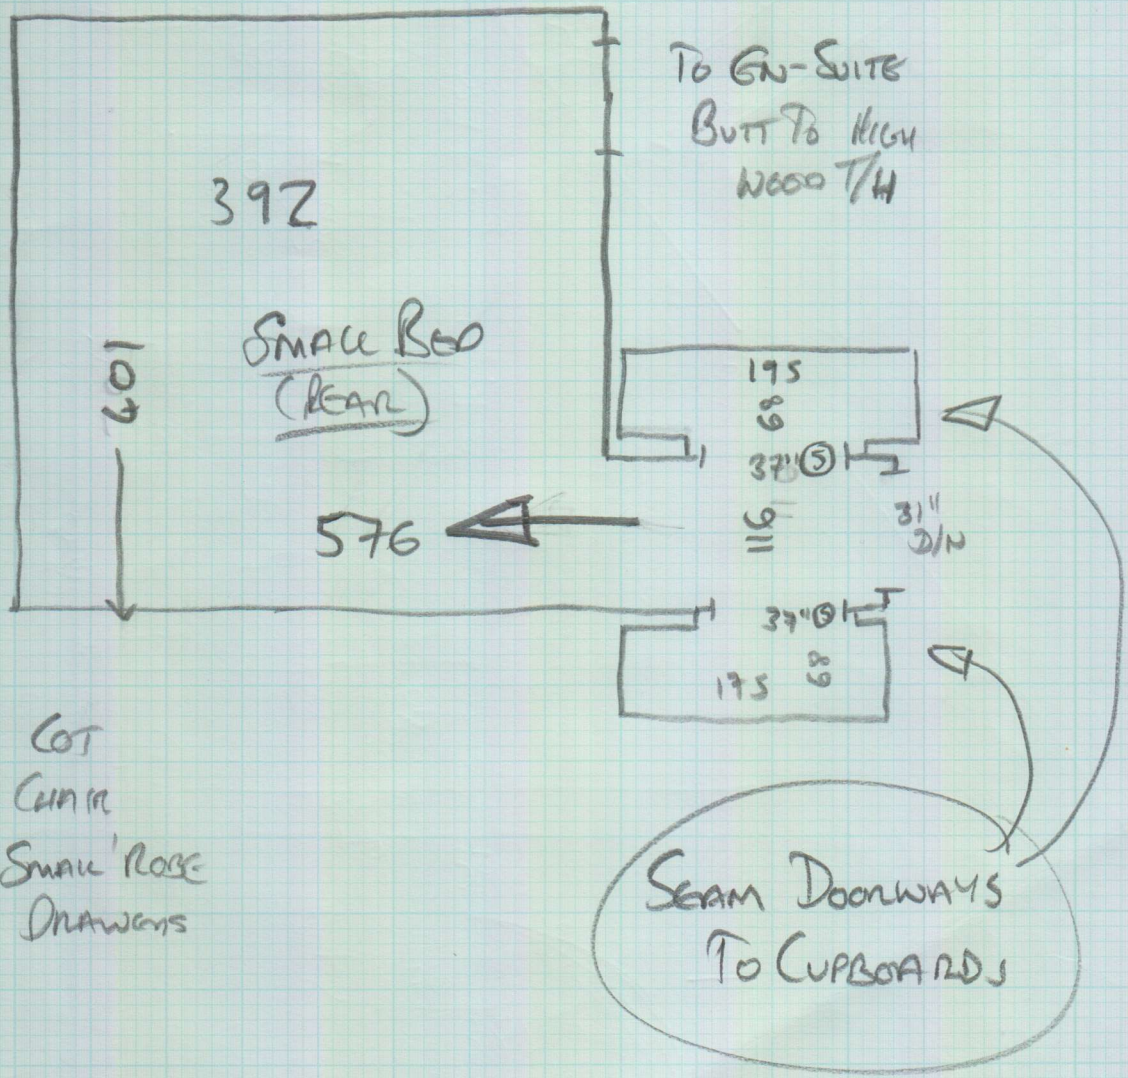 To En-Suite
Butt To High
Wood T/H
392
Small Bed
(Rear)
407
195
68
37" S
576
116
31"
D/N
37" S
68
175
Cot
Chair
Small 'Robe
Drawers
Seam Doorways
To Cupboards